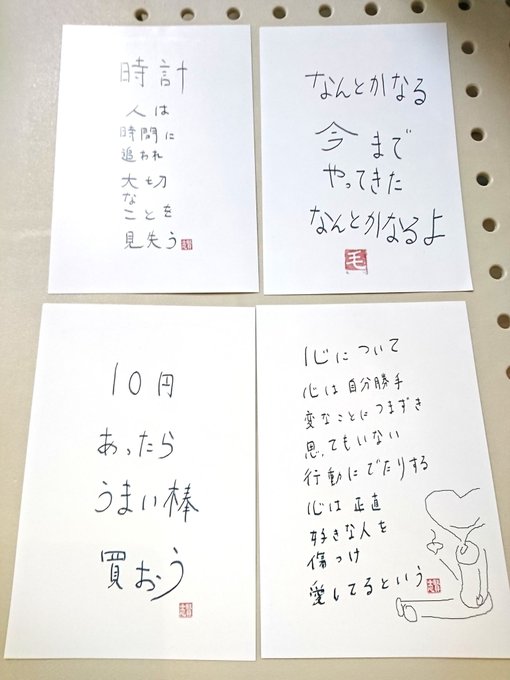 時計
人は
時間に
追われ
大切
な
ことを
見失う
なんとかなる
今まで
やってきた
なんとかなるよ
毛
10円
あったら
うまい棒
買おう
心について
心は自分勝手
変なことにつまずき
思ってもいない
行動にでたりする
心は正直
好きな人を
傷つけ
愛してるという